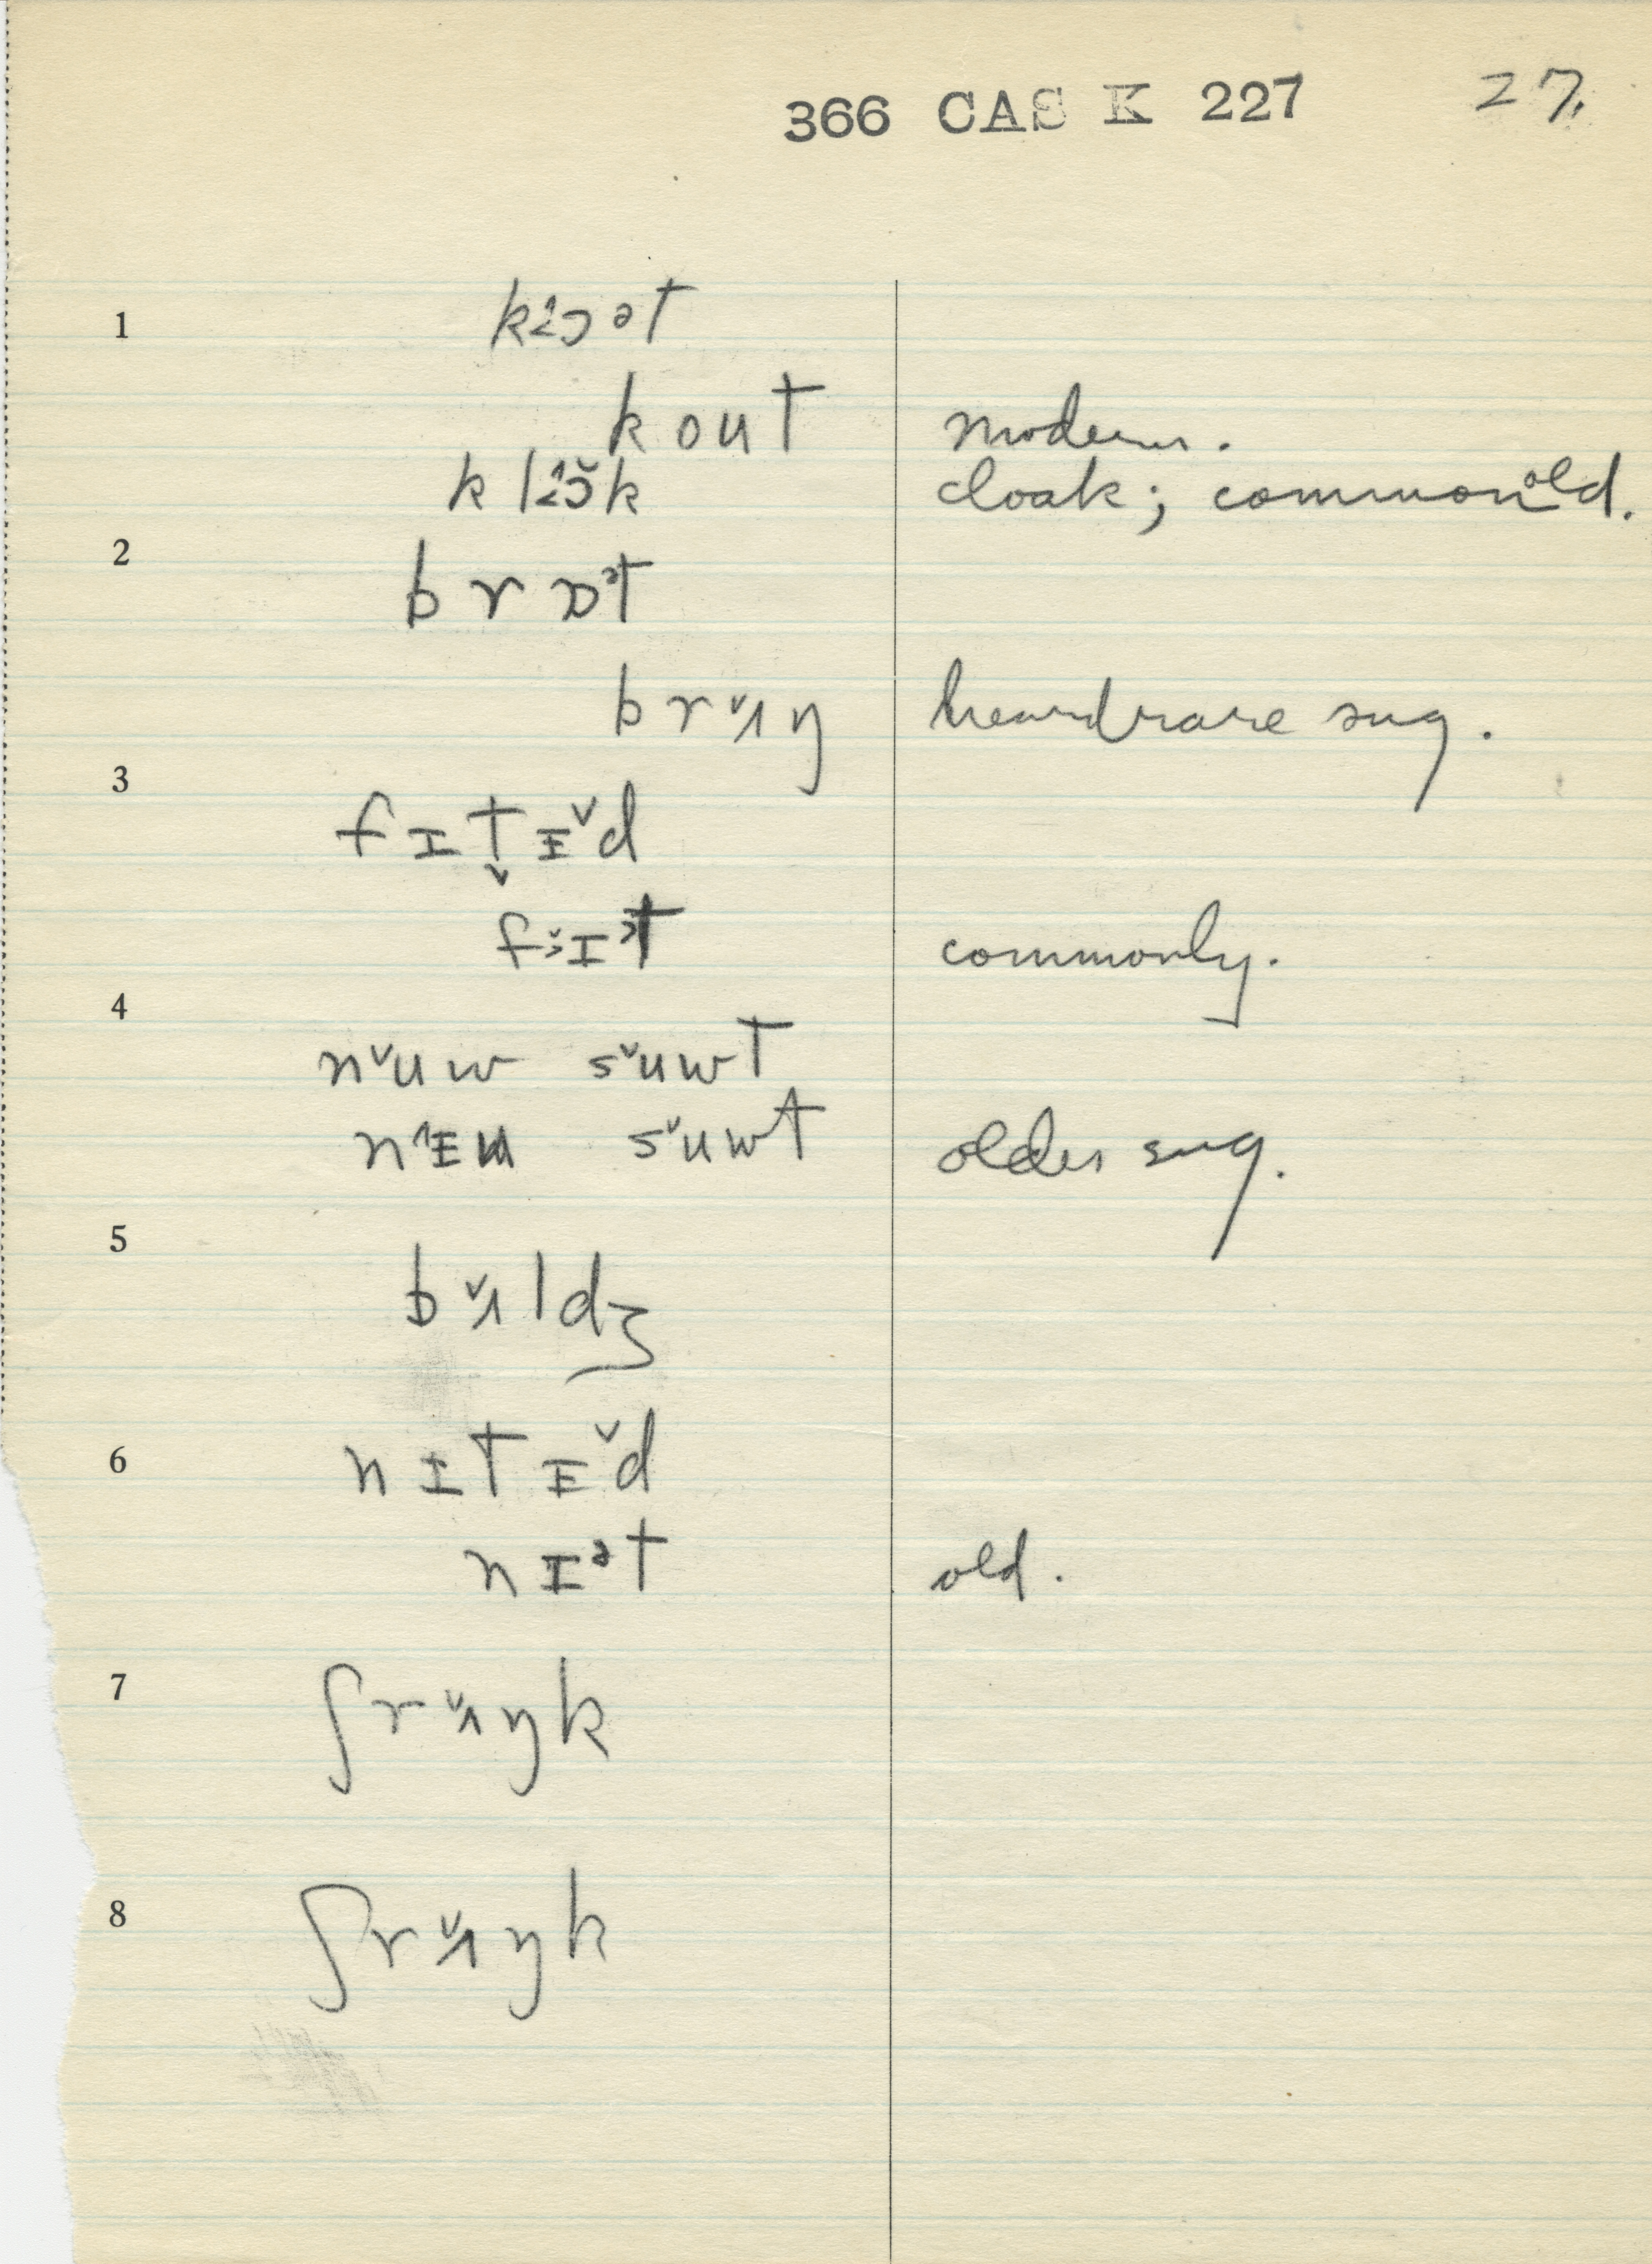 366 CAS K 227 27.
1 kɔ‹ət
kout modern.
klɔ̆k cloak; common old.
2 brɒᵊt
brʌ̌ŋ heard rare sug.
3 fɪt̬ɪ̌d
fɜɪᵊt commonly.
4 nˇuw sˇuwt
nˆɪu sˇuwt older sug.
5 bʌ̌ldʒ
6 nɪtɪˇd
nɪᵊt old.
7 ʃrʌ̌ŋk
8 ʃrʌ̌ŋk